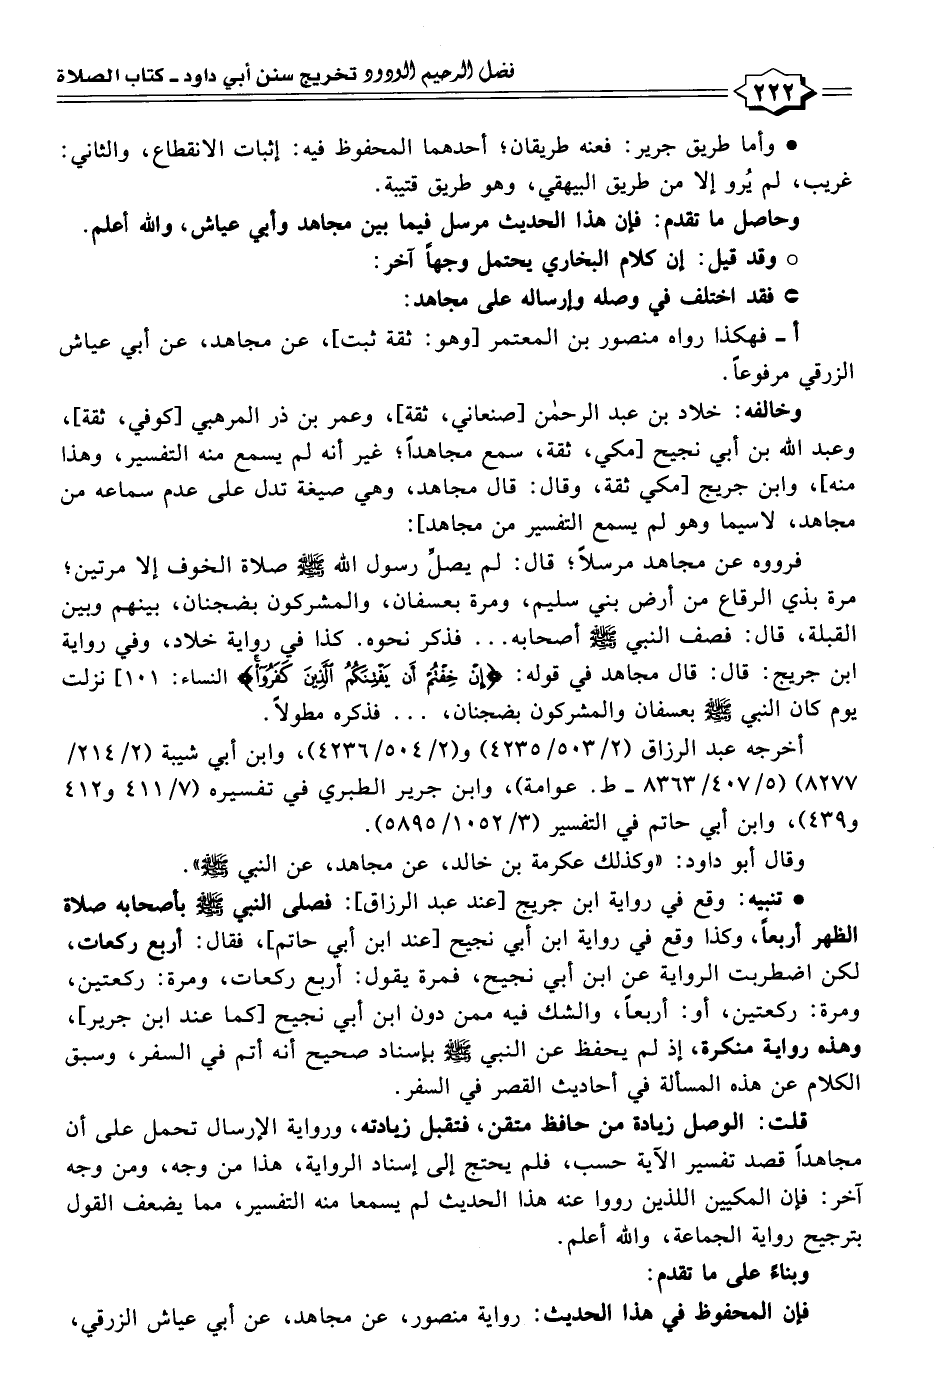 ٢٢٢ فضل الرحيم الودود تخريج سنن أبي داود ـ كتاب الصلاة
• وأما طريق جرير: فعنه طريقان؛ أحدهما المحفوظ فيه: إثبات الانقطاع، والثاني:
غريب، لم يُرو إلا من طريق البيهقي، وهو طريق قتيبة.
وحاصل ما تقدم: فإن هذا الحديث مرسل فيما بين مجاهد وأبي عياش، والله أعلم.
○ وقد قيل: إن كلام البخاري يحتمل وجهاً آخر:
⊂ فقد اختلف في وصله وإرساله على مجاهد:
أ ـ فهكذا رواه منصور بن المعتمر [وهو: ثقة ثبت]، عن مجاهد، عن أبي عياش
الزرقي مرفوعاً.
وخالفه: خلاد بن عبد الرحمٰن [صنعاني، ثقة]، وعمر بن ذر المرهبي [كوفي، ثقة]،
وعبد الله بن أبي نجيح [مكي، ثقة، سمع مجاهداً؛ غير أنه لم يسمع منه التفسير، وهذا
منه]، وابن جريج [مكي ثقة، وقال: قال مجاهد، وهي صيغة تدل على عدم سماعه من
مجاهد، لاسيما وهو لم يسمع التفسير من مجاهد]:
فرووه عن مجاهد مرسلاً؛ قال: لم يصلِّ رسول الله ﷺ صلاة الخوف إلا مرتين؛
مرة بذي الرقاع من أرض بني سليم، ومرة بعسفان، والمشركون بضجنان، بينهم وبين
القبلة، قال: فصف النبي ﷺ أصحابه... فذكر نحوه. كذا في رواية خلاد، وفي رواية
ابن جريج: قال: قال مجاهد في قوله: ﴿إِنْ خِفْتُمْ أَن يَفْتِنَكُمُ ٱلَّذِينَ كَفَرُوٓا۟﴾ النساء: ١٠١] نزلت
يوم كان النبي ﷺ بعسفان والمشركون بضجنان، ... فذكره مطولاً.
أخرجه عبد الرزاق (٢/ ٥٠٣/ ٤٢٣٥) و(٢/ ٥٠٤/ ٤٢٣٦)، وابن أبي شيبة (٢/ ٢١٤/
٨٢٧٧) (٥/ ٤٠٧/ ٨٣٦٣ ـ ط. عوامة)، وابن جرير الطبري في تفسيره (٧/ ٤١١ و٤١٢
و٤٣٩)، وابن أبي حاتم في التفسير (٣/ ١٠٥٢/ ٥٨٩٥).
وقال أبو داود: «وكذلك عكرمة بن خالد، عن مجاهد، عن النبي ﷺ».
• تنبيه: وقع في رواية ابن جريج [عند عبد الرزاق]: فصلى النبي ﷺ بأصحابه صلاة
الظهر أربعاً، وكذا وقع في رواية ابن أبي نجيح [عند ابن أبي حاتم]، فقال: أربع ركعات،
لكن اضطربت الرواية عن ابن أبي نجيح، فمرة يقول: أربع ركعات، ومرة: ركعتين،
ومرة: ركعتين، أو: أربعاً، والشك فيه ممن دون ابن أبي نجيح [كما عند ابن جرير]،
وهذه رواية منكرة، إذ لم يحفظ عن النبي ﷺ بإسناد صحيح أنه أتم في السفر، وسبق
الكلام عن هذه المسألة في أحاديث القصر في السفر.
قلت: الوصل زيادة من حافظ متقن، فتقبل زيادته، ورواية الإرسال تحمل على أن
مجاهداً قصد تفسير الآية حسب، فلم يحتج إلى إسناد الرواية، هذا من وجه، ومن وجه
آخر: فإن المكيين اللذين رووا عنه هذا الحديث لم يسمعا منه التفسير، مما يضعف القول
بترجيح رواية الجماعة، والله أعلم.
وبناءً على ما تقدم:
فإن المحفوظ في هذا الحديث: رواية منصور، عن مجاهد، عن أبي عياش الزرقي،